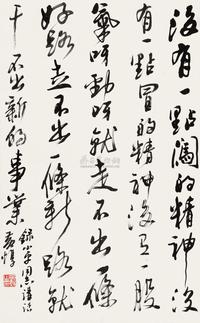 没有一點闖的精神没
有一點冒的精神没有一股
氣呀勁呀就走不出一條
好路走不出一條新路就
干不出新的事業
錄小平同志語